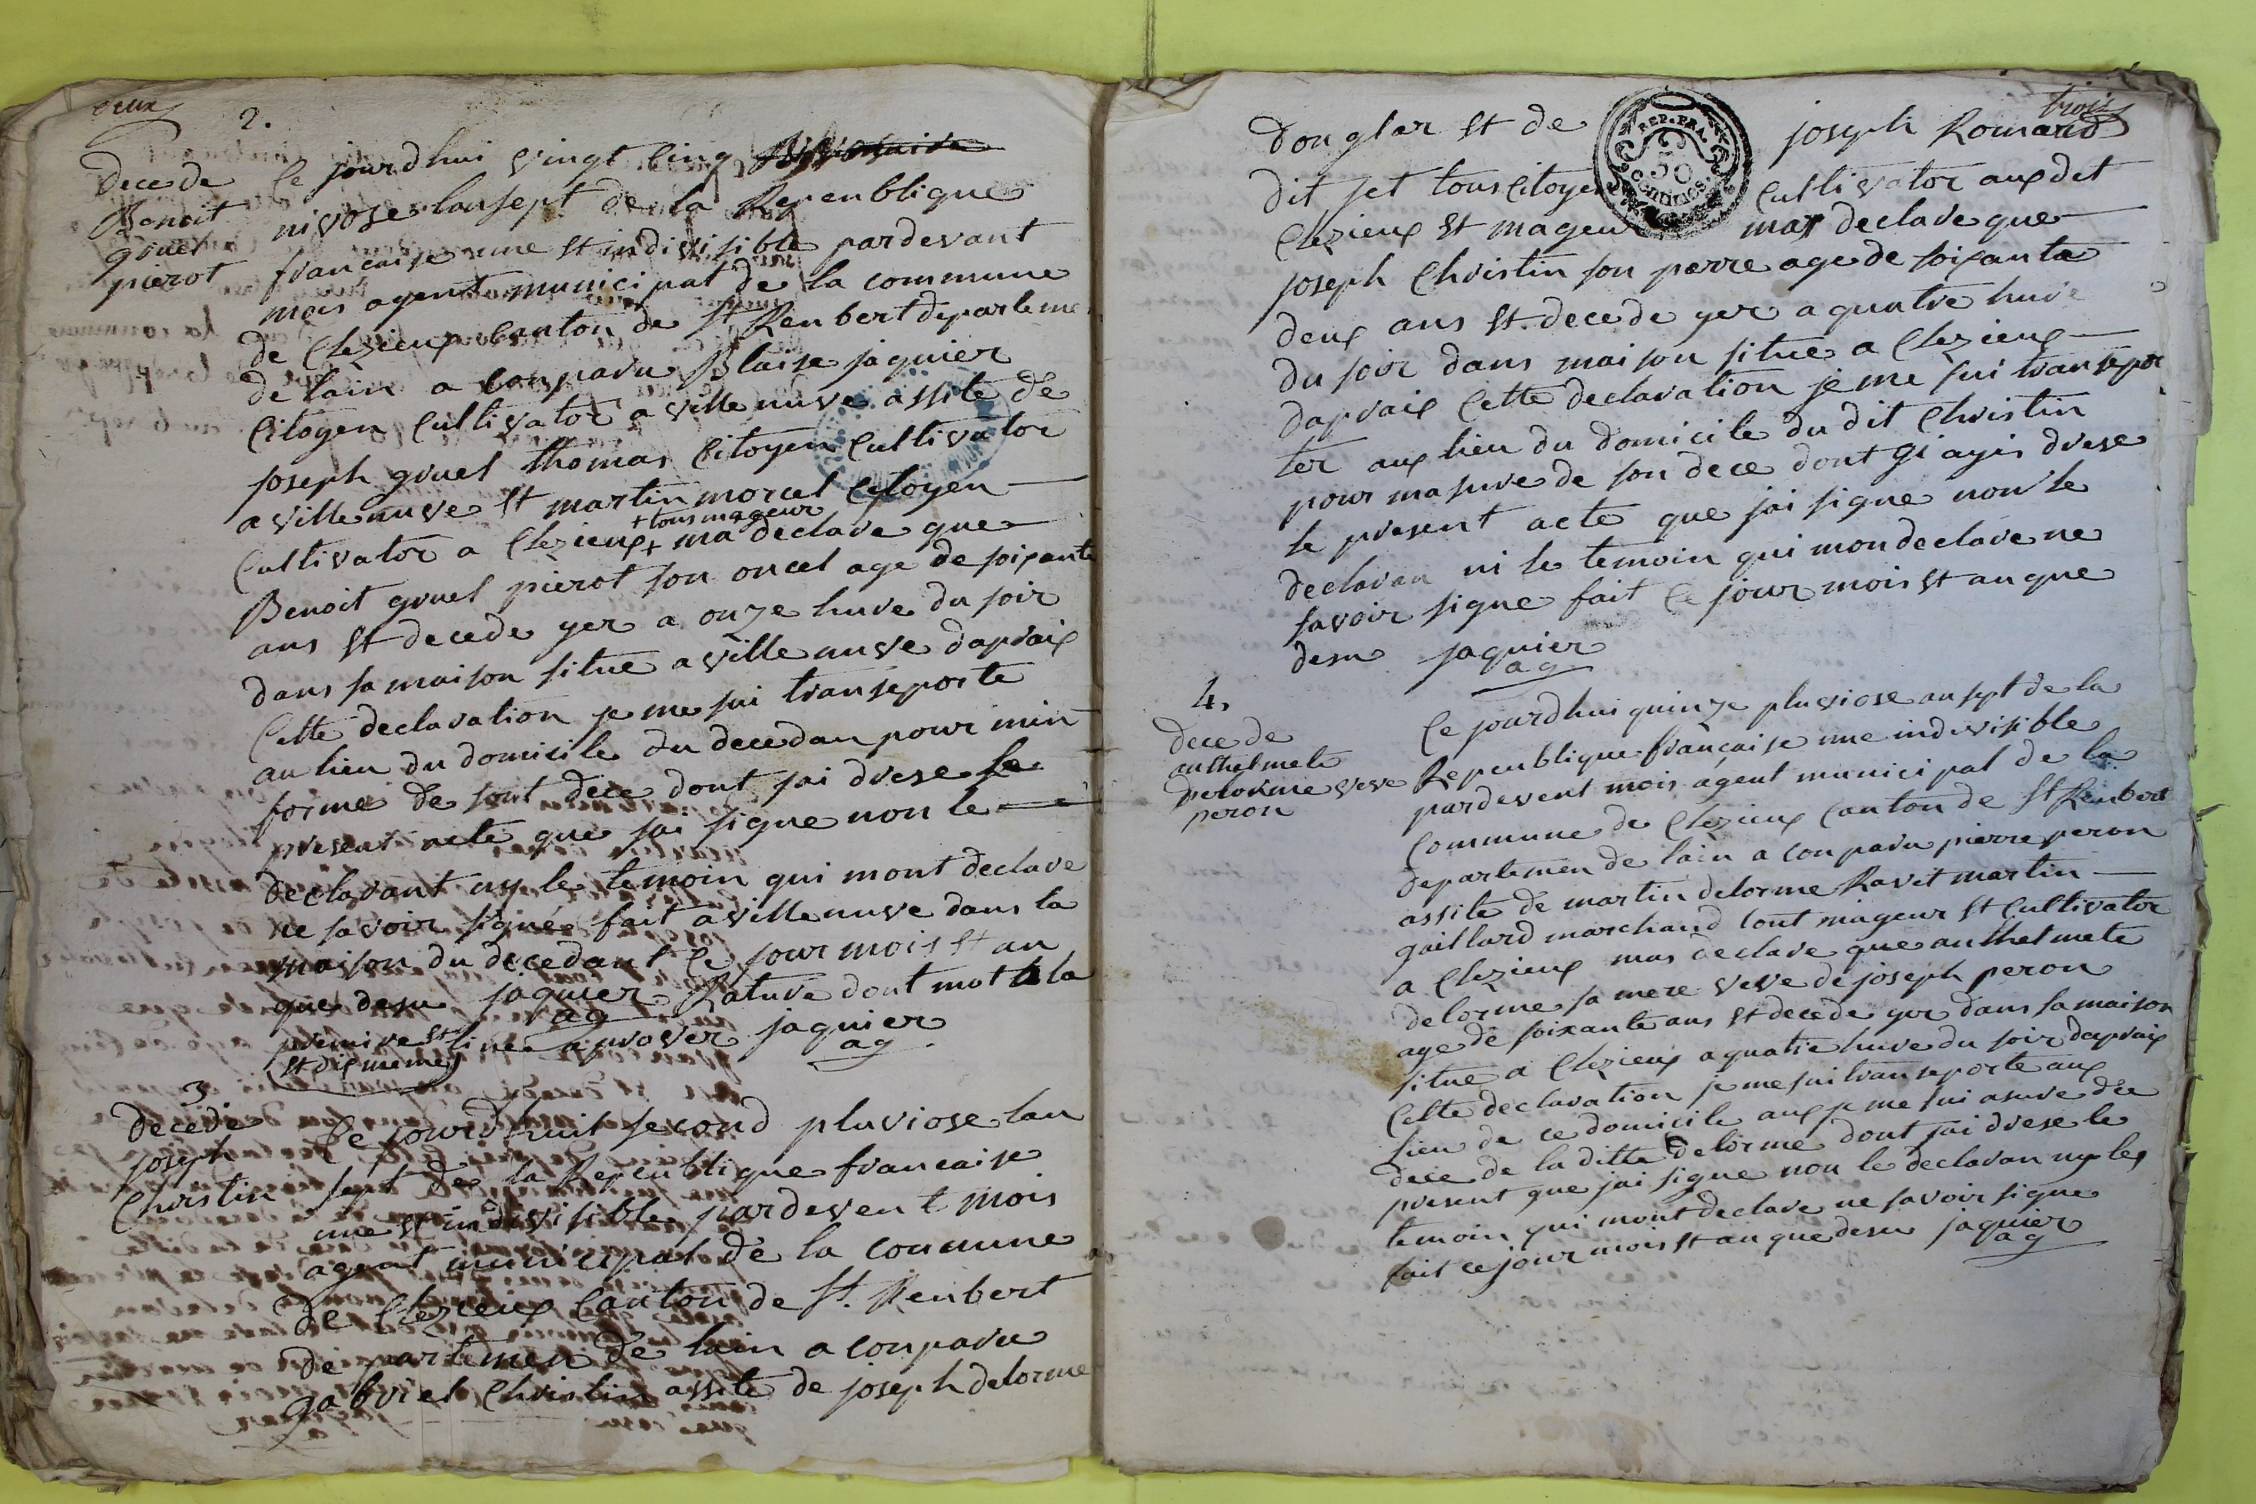 deux
2.
Decede
Benoit
gruel
pierot
Ce jourdhui vingt cinq
nivose lansept de la Repeublique
francaise une et indivisible pardevant
mois agent municipal de la commune
de Clezieux Canton de St Renbert departeme
de lain a conparu Blaise jaquier
Citoyen Cultivator a ville nuve assite de
joseph gruel thomas Citoyen Cultivator
a ville nuve et martin morcel Citoyen
+ tous mageur
Cultivator a Clezieux + ma declare que
Benoit gruel pierot son oncel age de soixante
ans et decede yer a onze huve du soir
dans sa maison situe a ville nuve daprais
Cette declaration je me sui transeporte
au lieu du domicile du decedan pour min
forme de sont dece dont jai drese le
present acte que jai signe non le
declarant ny le temoin qui mont declare
ne savoir signé fait a ville nuve dans la
maison du decedant Ce jour mois et an
que desu jaquier Rature dont mot à la
ag
premire et line aprover jaquier
et dixmemes
ag
3
decede
joseph
Christin
Ce jourdhuit second pluviose lan
sept de la Repeublique francaise
une et indivisible pardevent mois
agent municipal de la commune
de Clezieux Canton de St. Renbert
departemen de lain a conparu
gabriel Christin assite de joseph delorme
trois
REP. FRA.
50
Centimes.
Donglar et de joseph Romand
dit jet tous Citoyen Cultivator aux dit
Clezieux et mageur mas declare que
joseph Christin son perre age de soixanta
deux ans et decede yer a quatre huve
du soir dans maison situe a Clezieux
daprais Cette declaration je me sui transepor
ter aux lieu du domicile du dit Christin
pour masure de son dece dont gi ayis drese
le present acte que jai signe non le
declaran ni le temoin qui mon declare ne
savoir signe fait Ce jour mois et an que
desu jaquier
ag
4.
dece de
anthelmete
delorme veve
peron
Ce jourdhui quinze pluviose an sept de la
Repeublique française une indevisible
pardevent mois agent municipal de la
Commune de Clezieux Canton de St Renbert
departemen de lain a conparu pierre peron
assite de martin delorme Ravet martin
gaillard marchand tout mageur et Cultivator
a Clezieux mas declare que anthelmete
delorme sa mere veve de joseph peron
age de soixante ans et decede yer dans sa maison
situe a Clezieux a quatre huve du soir daprais
Cette declaration je me sui transeporte aux
lieu de ce domicile aux je me sui asure de
dece de la ditte delorme dont jai drese le
present que jai signe non le declaran ny les
temoin qui mont declare ne savoir signe
fait ce jour mois et an que desu jaquier
ag